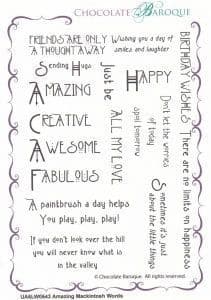 CHOCOLATE BAROQUE
FRIENDS ARE ONLY
A THOUGHT AWAY
Wishing you a day of
smiles and laughter
BIRTHDAY WISHES
Sending Hugs
Just be
HAPPY
AMAZING
CREATIVE
AWESOME
FABULOUS
ALL MY LOVE
Don't let the worries
of today
spoil tomorrow
There are no limits on happiness
Sometimes it's just
about the little things
A paintbrush a day helps
You play, play, play!
If you don't look over the hill
you will never know what is
in the valley
© Chocolate Baroque. All rights reserved.
UA6LW0643 Amazing Mackintosh Words